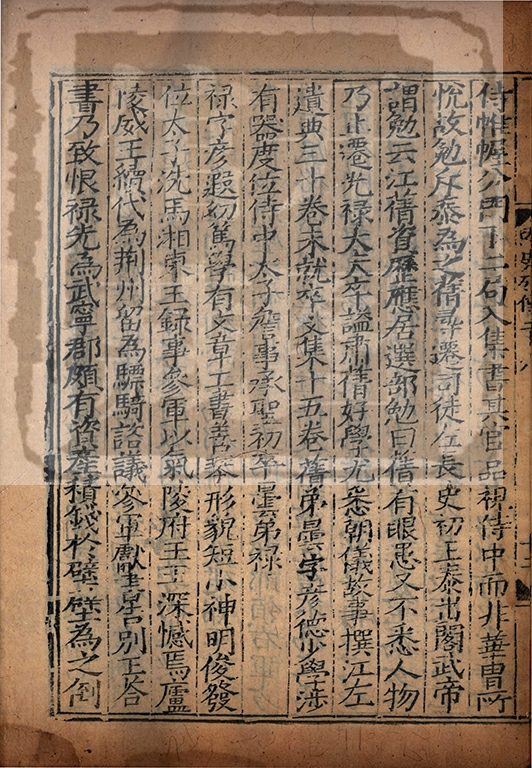 侍帷幄分門下二局入集書其官品視侍中而非華胄所
悅故勉斥泰為之蒨尋遷司徒左長史初王泰出閣武帝
謂勉云江蒨資歷應居選部勉曰蒨有眼患又不悉人物
乃止遷光祿大夫卒謚肅蒨好學尤悉朝儀故事撰江左
遺典三十卷未就卒文集十五卷蒨弟曇字彥德少學涉
有器度位侍中太子詹事承聖初卒曇弟祿
祿字彥遐幼篤學有文章工書善琴形貌短小神明俊發
位太子洗馬湘東王録事參軍以氣陵府王王深憾焉廬
陵威王續代為荊州留為驃騎諮議參軍獻書告別王荅
書乃致恨祿先為武寧郡頗有資產積錢於壁壁為之倒